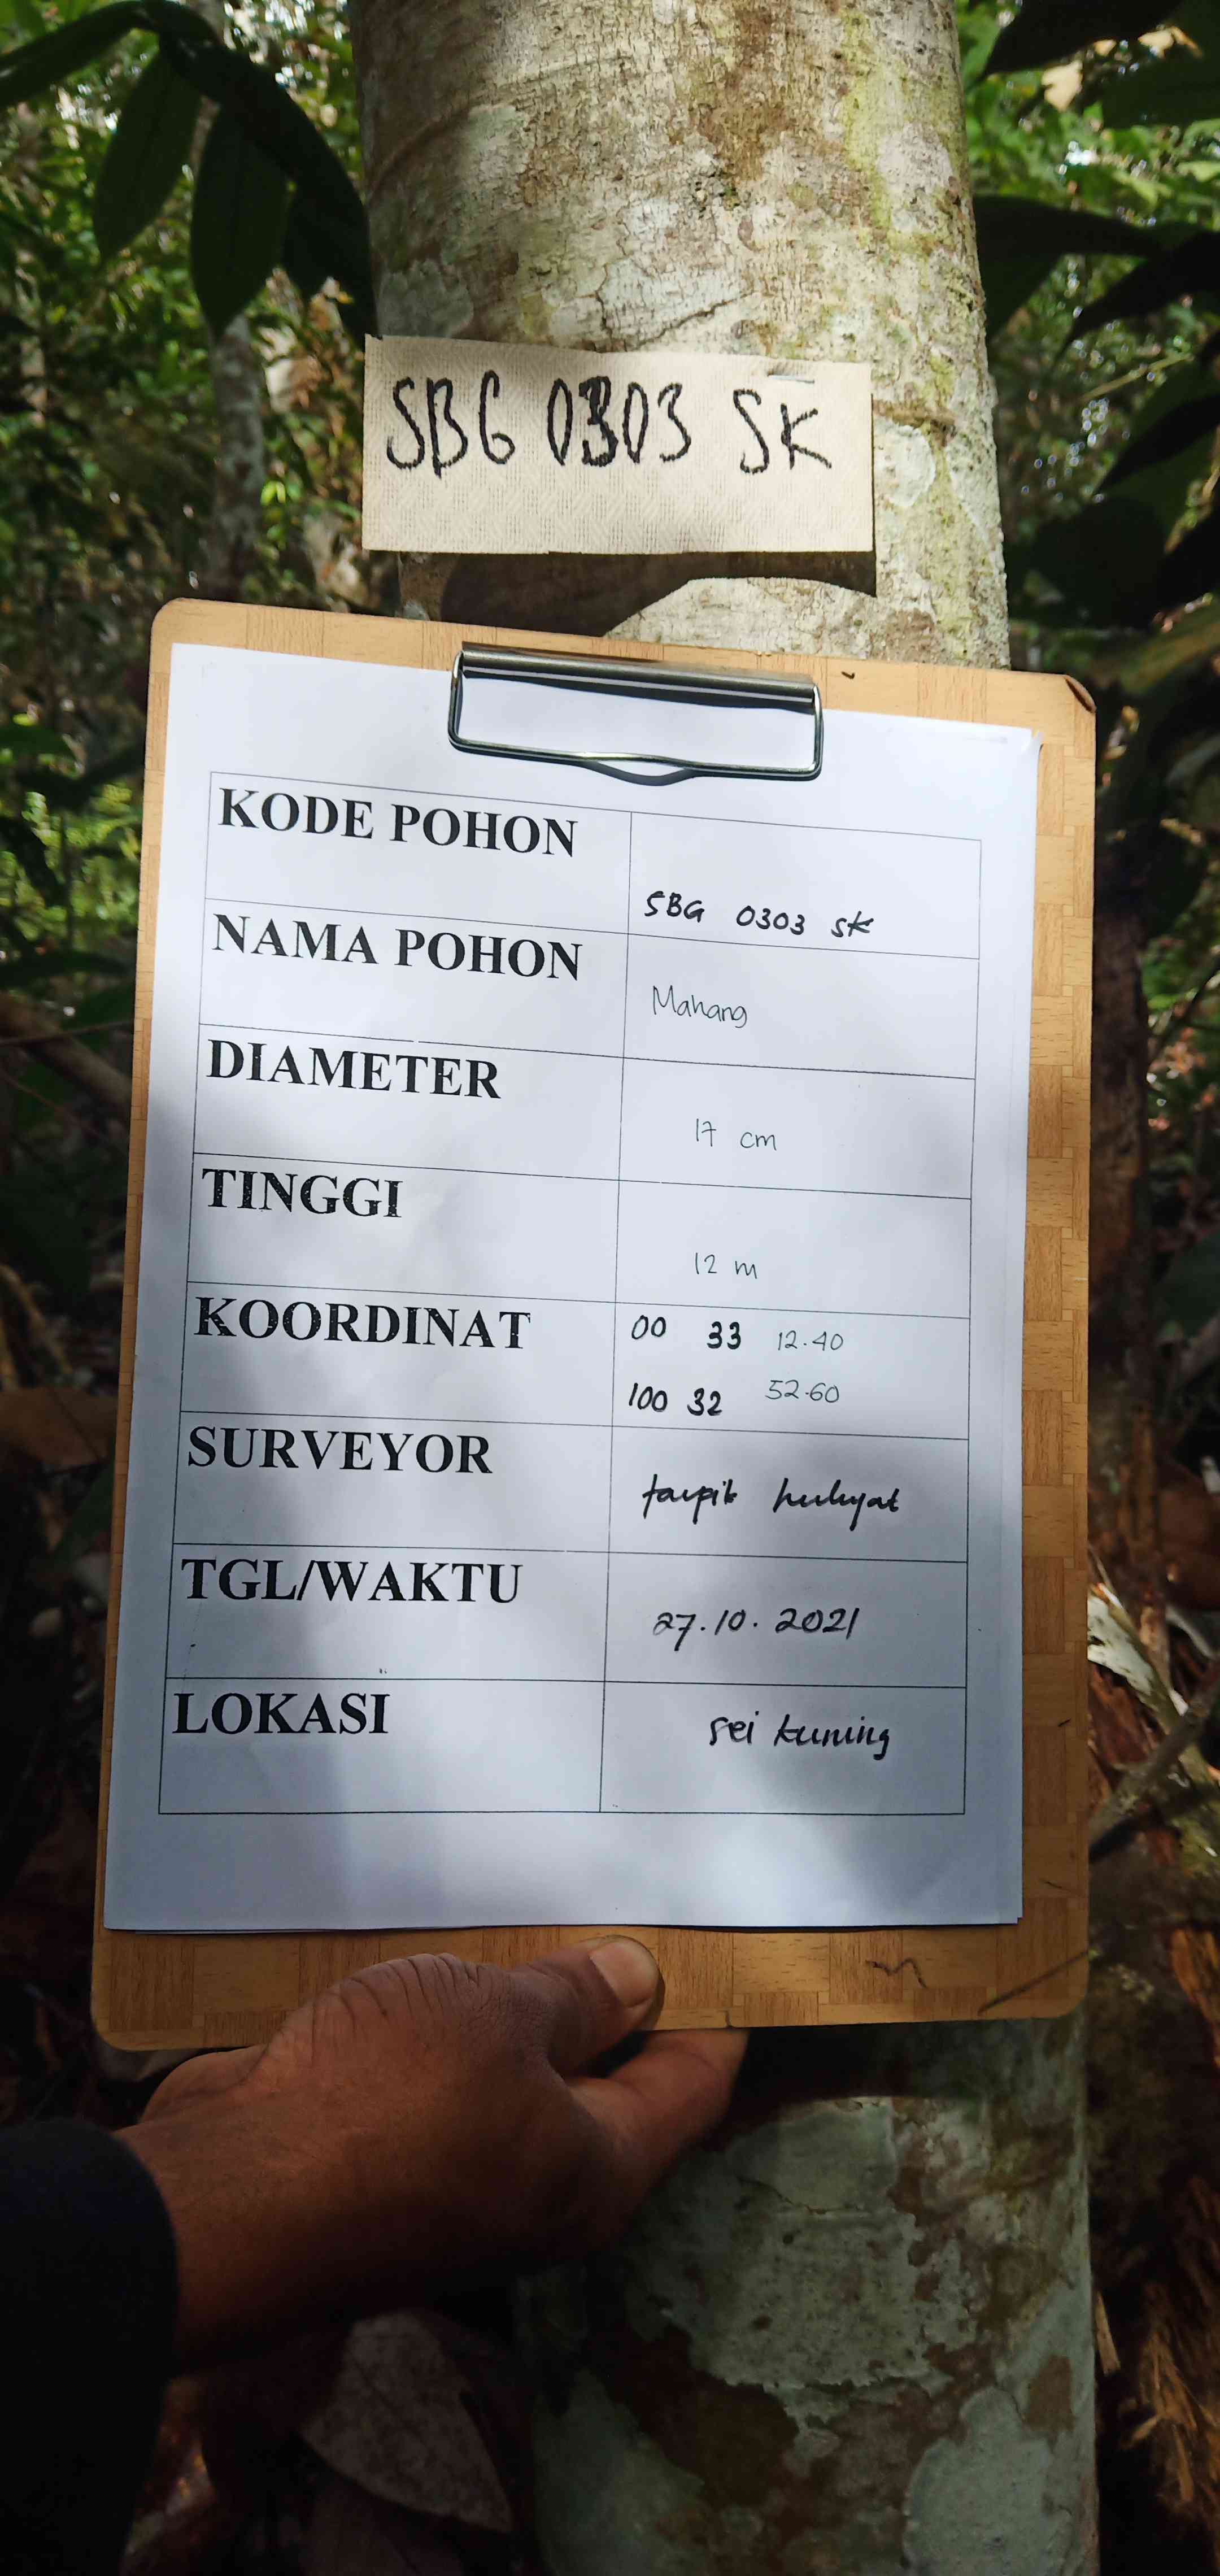 SBG 0303 SK
KODE POHON
SBG 0303 SK
NAMA POHON
Mahang
DIAMETER
17 cm
TINGGI
12 m
KOORDINAT
00 33 12.40
100 32 52.60
SURVEYOR
taupik huluyat
TGL/WAKTU
27.10.2021
LOKASI
sei kuning